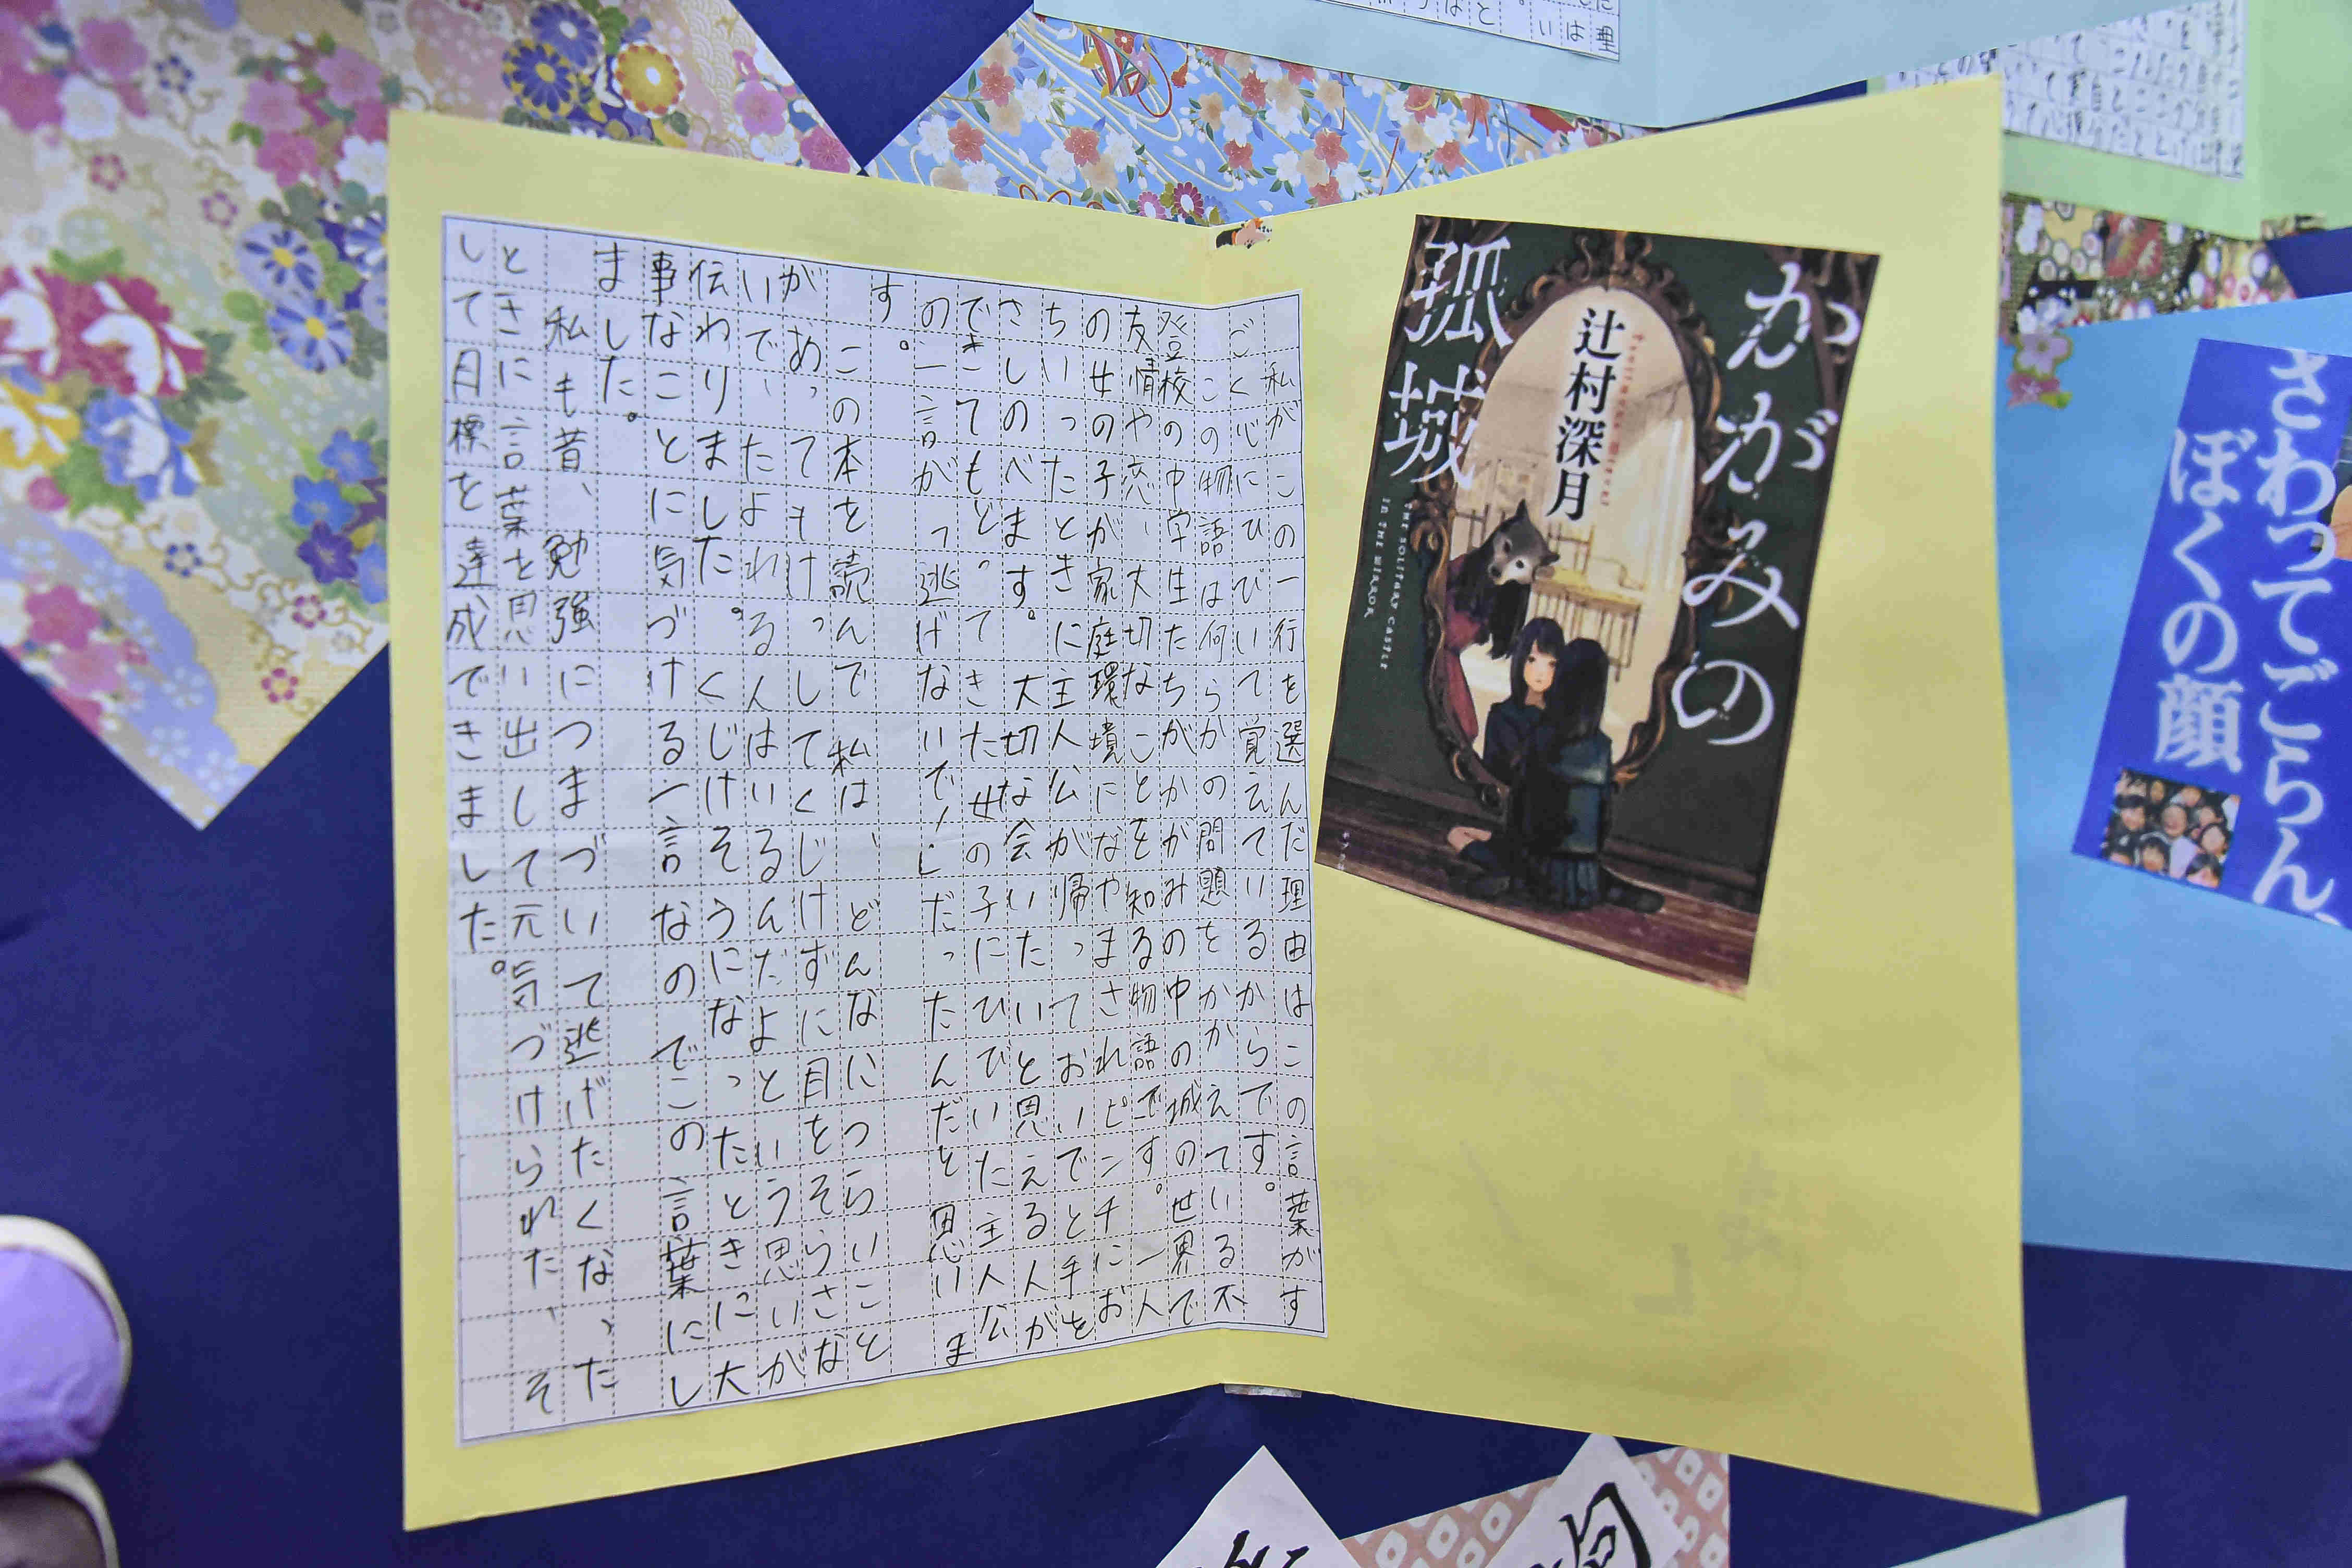 かがみの
孤城
辻村深月
THE SOLITARY CASTLE
IN THE MIRROR
私がこの一行を選んだ理由はこの言葉がす
ごく心にひびいて覚えているからです。
この物語は何らかの問題をかかえている不
登校の中学生たちがかがみの中の城の世界で
友情や恋、大切なことを知る物語です。一人
の女の子が家庭環境になやまされピンチにお
ちいったときに主人公が帰っておいでと手を
さしのべます。大切な会いたいと思える人が
できてもどってきた女の子にひびいた主人公
の一言が「逃げないで!」だったんだと思いま
す。
この本を読んで私は、どんなにつらいこと
があってもけっしてくじけずに目をそらさな
いで、たよれる人はいるんだよという思いが
伝わりました。くじけそうになったときに大
事なことに気づける一言なのでこの言葉にし
ました。
私も昔、勉強につまづいて逃げたくなった
ときに言葉を思い出して元気づけられた、そ
して目標を達成できました。
さわってごらん、
ぼくの顔